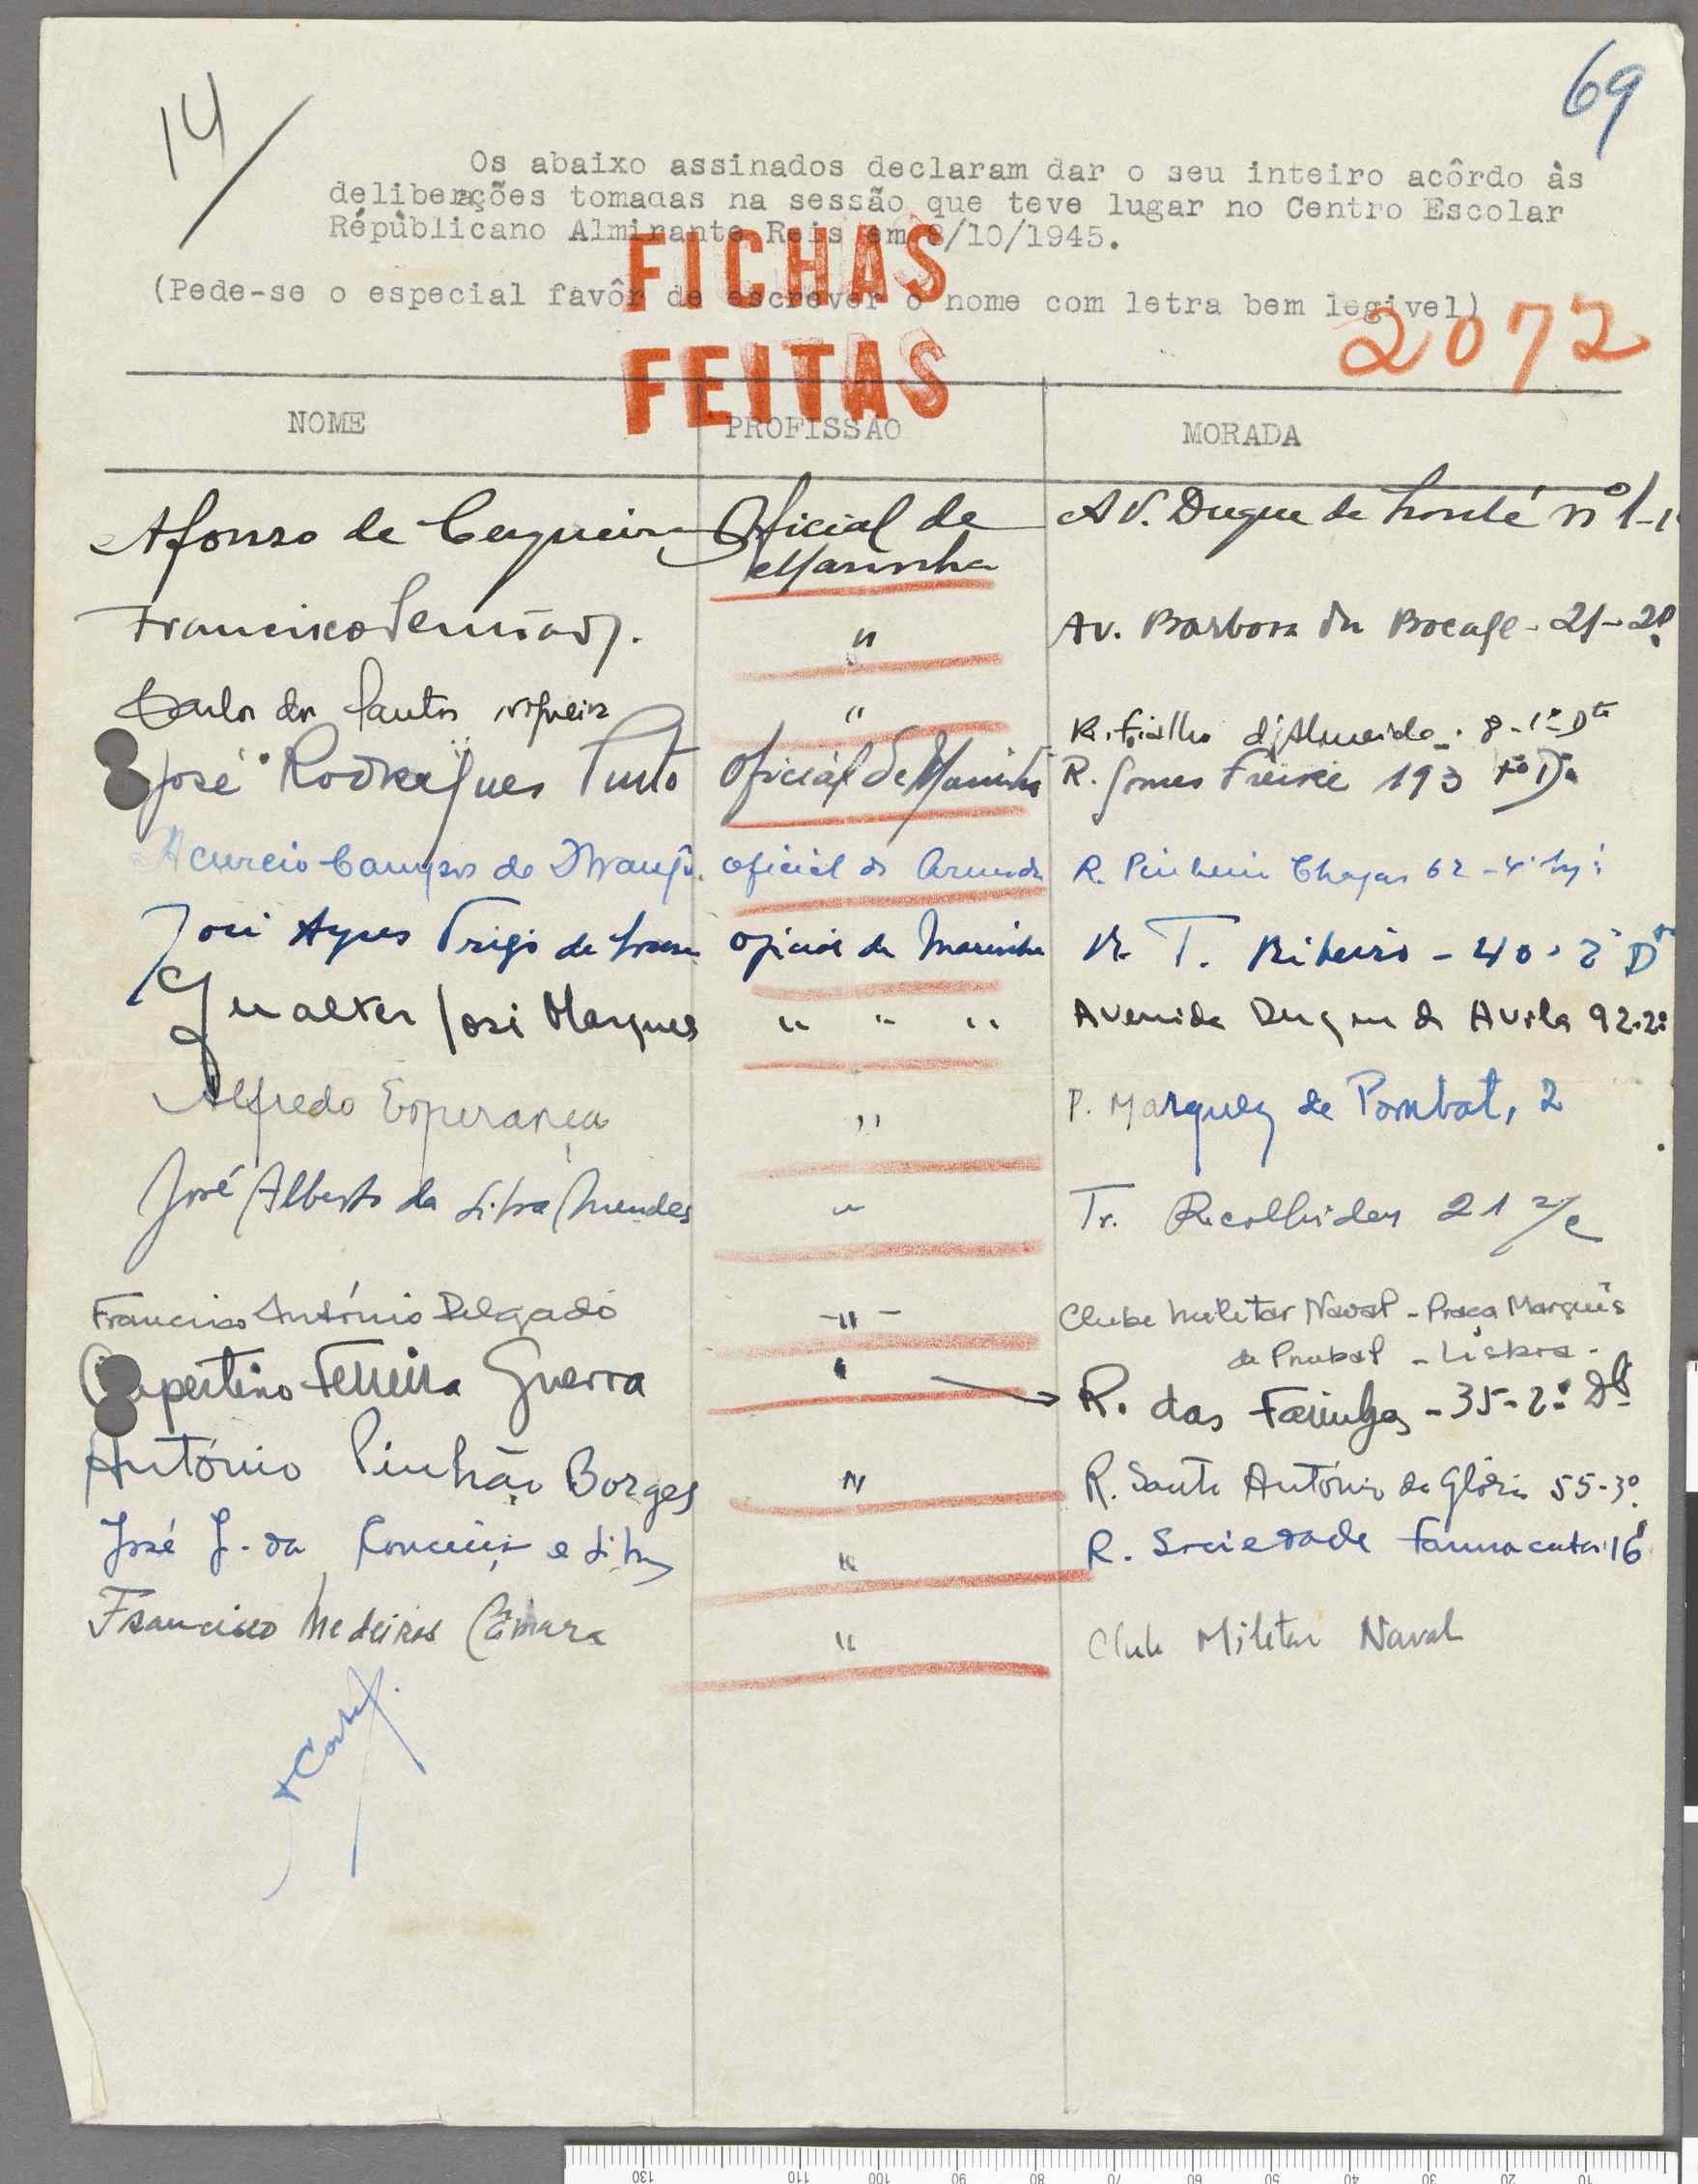 14
69
Os abaixo assinados declaram dar o seu inteiro acôrdo às
deliberações tomadas na sessão que teve lugar no Centro Escolar
Républicano Almirante Reis em 8/10/1945.
(Pede-se o especial favôr de escrever o nome com letra bem legivel)
FICHAS
FEITAS
2072
NOME PROFISSÃO MORADA
Afonso de Cerqueira Oficial de Marinha Av. Duque de Loulé nº 1-1
Francisco " Av. Barbosa du Bocage - 21-2º
Carlos dos Santos " R. Fialho d'Almeida - 8-1º Dto
José Rodrigues Pinto Oficial de Marinha R. Gomes Freire 193
Acurcio Campos de Araujo. Oficial da Armada R. Pinheiro Chagas 62-4º
José Ayres Trigo de Sousa Oficial da Marinha R. T. Ribeiro - 40-2º Dto
Gualter José Marques " " " Avenida Duque de Avila 92-2º
Alfredo Esperança " P. Marquez de Pombal, 2
José Alberto da Silva Mendes " Tr. Recolhidas 21 r/c
Francisco António Delgado -"- Clube Militar Naval - Praça Marquês
de Pombal - Lisboa -
Cupertino Ferreira Guerra " R. das Farinhas - 35-2º Dto
António Pinhão Borges " R. Santo António da Glória 55-3º.
José J. da Conceição e Silva " R. Sociedade Farmaceutica 16
Francisco Medeiros Câmara " Club Militar Naval